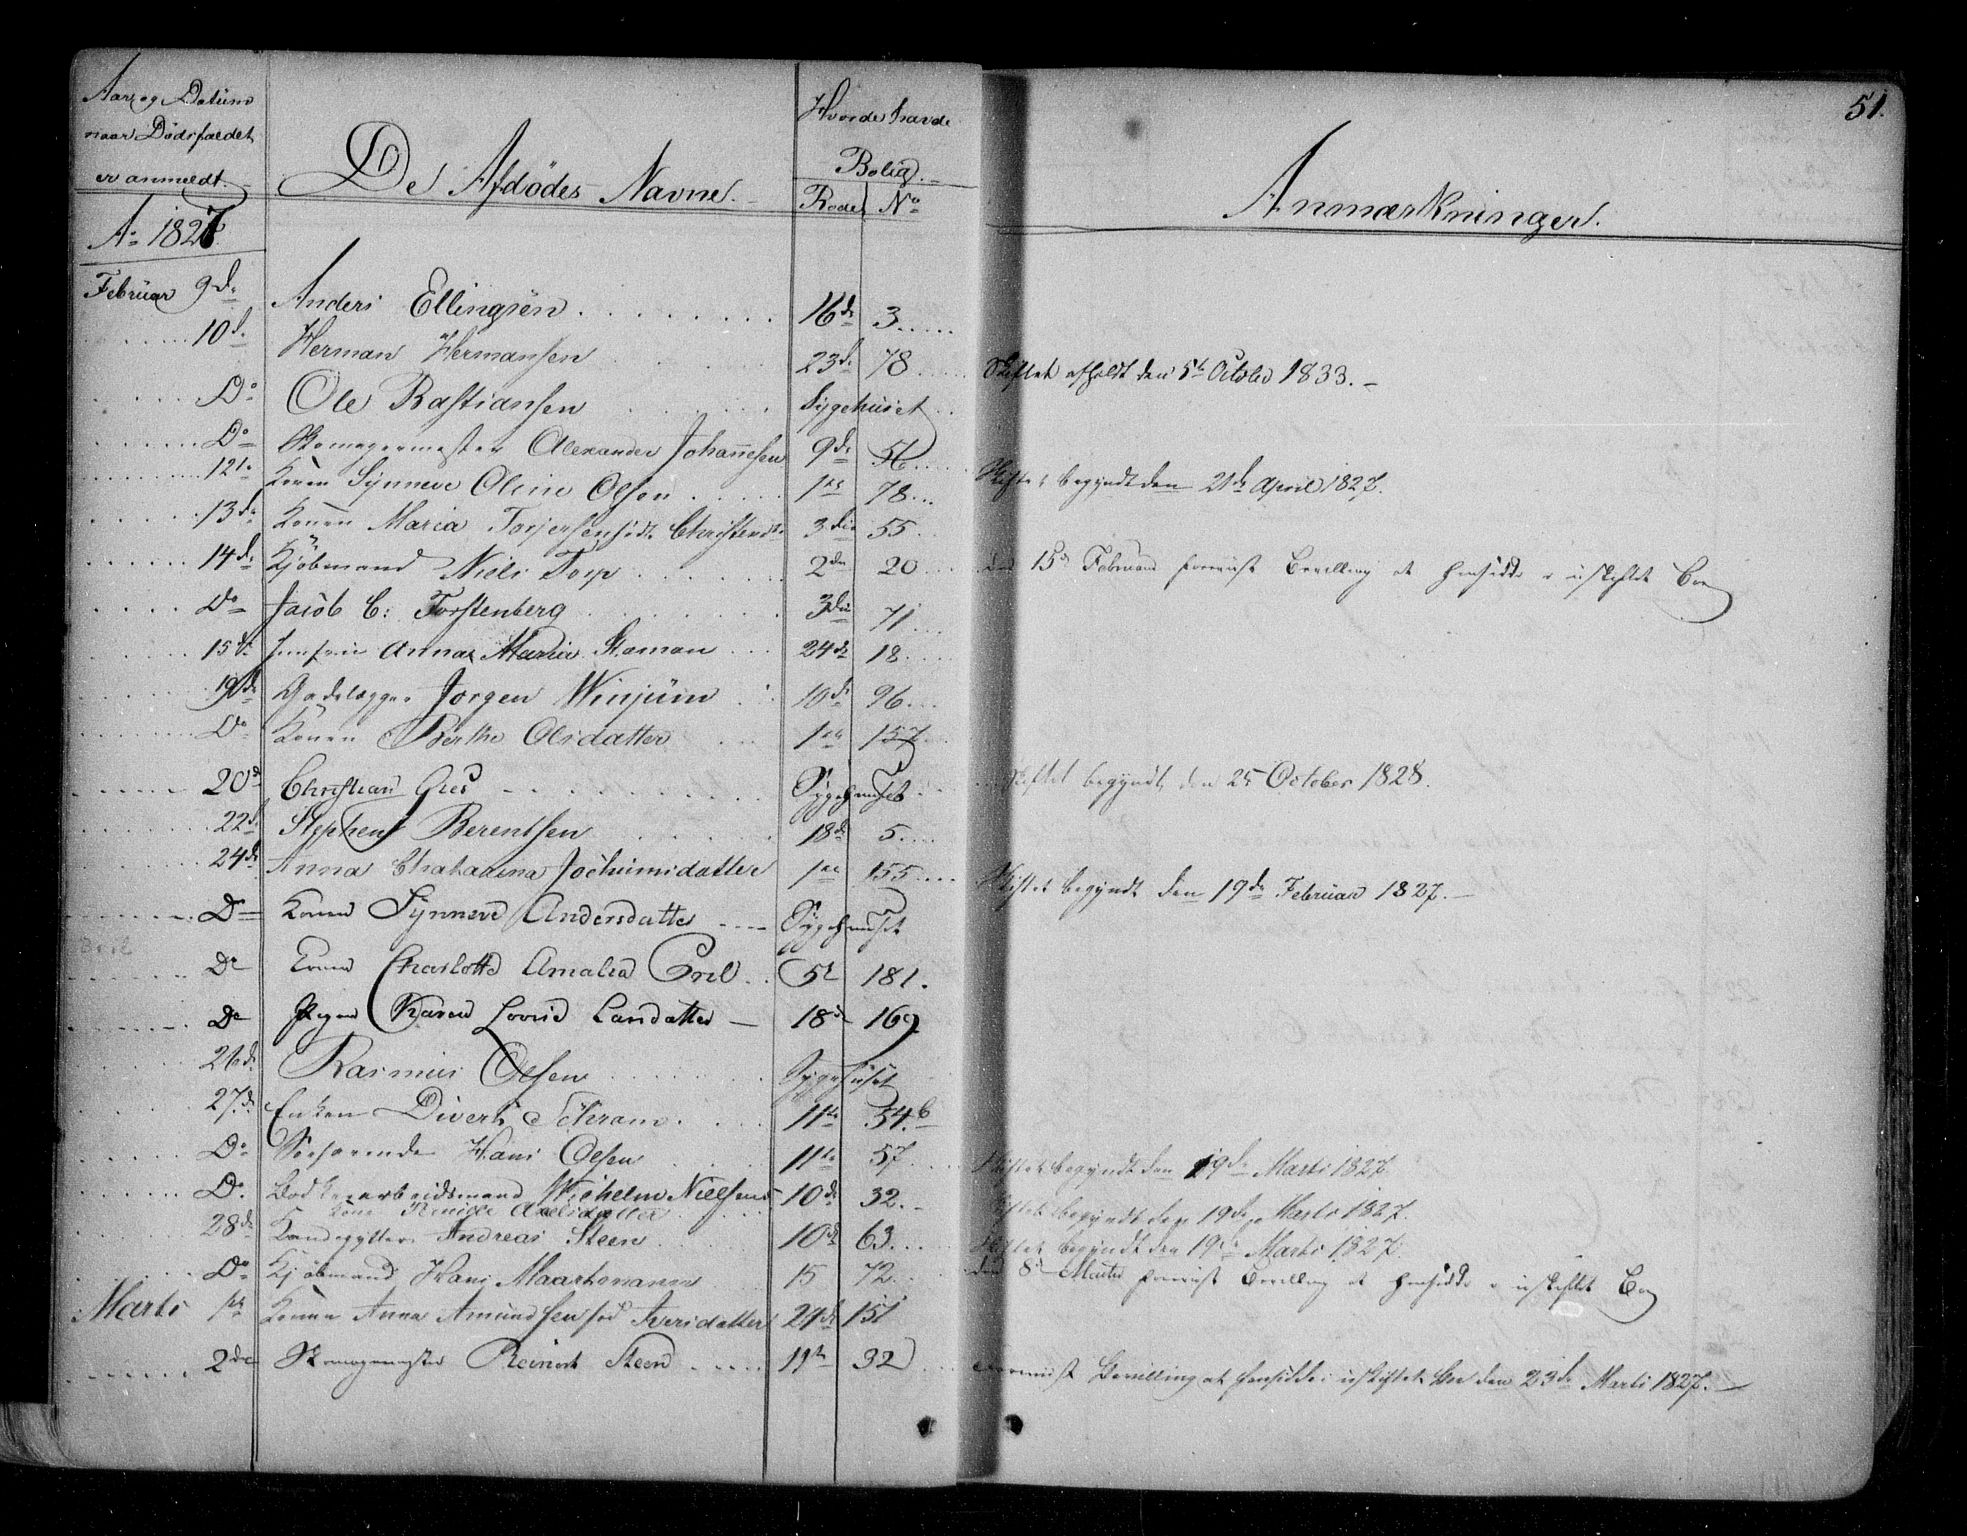 51.
Aar og Datum
naar Dødsfaldet
er anmeldt.
De Afdødes Navne.
Hvor de havde
Bolig.
Rode No
Anmærkninger.
Ao 1827
Februar 9de Anders Ellingsen 16de 3
10de Herman Hermansen 23de 78 Skiftet afholdt den 5te October 1833.
Do Ole Bastiansen Sygehuset
Do Skomagermester Alexander Johannesen 9de 56
12te Konen Synneve Oline Olsen 1ste 78 Skiftet begyndt den 21de April 1827.
13de Konen Maria Torjersen født Christensdr 3die 55
14de Kjöbmand Niels Torp 2den 20 den 15de Februar foreviist Bevilling at hensidde i uskiftet Boe
Do Jacob C: Forstenberg 3die 71
15de Jomfrue Anna Maria Staman 24de 18
19de Gadelægger Jorgen Winjum 10de 96
Do Konen Berthe Olsdatter 1ste 157
20de Christian Gres Sygehuset Skiftet begyndt den 25 October 1828.
22de Stephen Berentsen 18de 5
24de Anna Chatarina Jochumsdatter 1ste 155 Skiftet begyndt den 19de Februar 1827.
Do Konen Synneve Andersdatter Sygehuset
Do Konen Charlotte Amalia Gril 5te 181.
Do Pigen Karen Lovise Larsdatter 18de 169
26de Rasmus Olsen Sygehuset
27de Enken Divert Schram 11te 34.b
Do Søefarende Hans Olsen 11te 57 Skiftet begyndt den 19de Marti 1827.
Do Bødkerarbeidsmand Wilhelm Nielsens 10de 32. Skiftet begyndt den 19de Marti 1827.
Kone Axelsdatter
28de Kandegytter Andreas Steen 10de 63 Skiftet begyndt den 19de Marti 1827.
Do Kjöbmand Hans Maartmann 15 72 den 8de Martii foreviist Bevilling at hensidde i uskiftet Boe
Marti 1ste Konen Anna Amundsen fød Iversdatter 24de 151
2den Skomagermester Reinert Steen 11te 32 foreviist Bevilling at hensidde i uskiftet Boe den 23de Marti 1827.